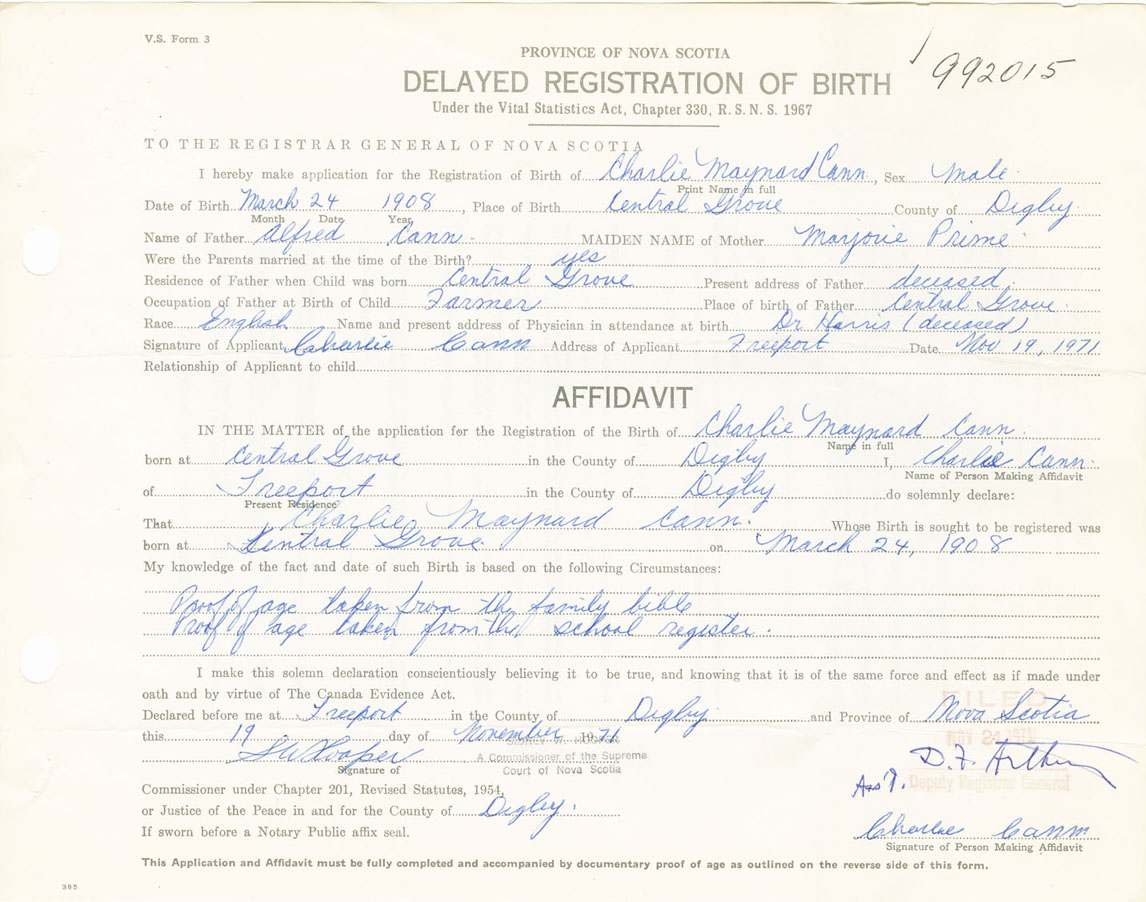 V.S. Form 3
992015
PROVINCE OF NOVA SCOTIA
DELAYED REGISTRATION OF BIRTH
Under the Vital Statistics Act, Chapter 330, R.S.N.S. 1967
TO THE REGISTRAR GENERAL OF NOVA SCOTIA
I hereby make application for the Registration of Birth of Charlie Maynard Cann, Sex Male
Print Name in full
Date of Birth March 24 1908, Place of Birth Central Grove County of Digby
Month Date Year
Name of Father Alfred Cann MAIDEN NAME of Mother Marjorie Prime
Were the Parents married at the time of the Birth? yes
Residence of Father when Child was born Central Grove Present address of Father deceased
Occupation of Father at Birth of Child Farmer Place of birth of Father Central Grove
Race English Name and present address of Physician in attendance at birth Dr Harris (deceased)
Signature of Applicant Charlie Cann Address of Applicant Freeport Date Nov 19, 1971
Relationship of Applicant to child
AFFIDAVIT
IN THE MATTER of the application for the Registration of the Birth of Charlie Maynard Cann
Name in full
born at Central Grove in the County of Digby I, Charlie Cann
Name of Person Making Affidavit
of Freeport in the County of Digby do solemnly declare:
Present Residence
That Charlie Maynard Cann. Whose Birth is sought to be registered was
born at Central Grove on March 24, 1908
My knowledge of the fact and date of such Birth is based on the following Circumstances:
Proof of age taken from the family bible
Proof of age taken from the school register.
I make this solemn declaration conscientiously believing it to be true, and knowing that it is of the same force and effect as if made under
oath and by virtue of The Canada Evidence Act.
Declared before me at Freeport in the County of Digby and Province of Nova Scotia
FILED
this 19 day of November 1971
NOV 24 1971
A Commissioner of the Supreme
Court of Nova Scotia
Signature of
D.F. Arthur
Ass't. Deputy Registrar General
Commissioner under Chapter 201, Revised Statutes, 1954,
or Justice of the Peace in and for the County of Digby.
If sworn before a Notary Public affix seal.
Charlie Cann
Signature of Person Making Affidavit
This Application and Affidavit must be fully completed and accompanied by documentary proof of age as outlined on the reverse side of this form.
385